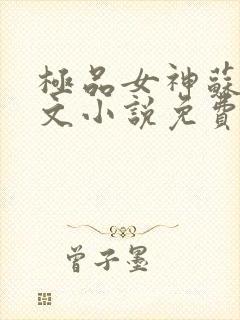 極品女神蘇
文小說免費
曾子墨